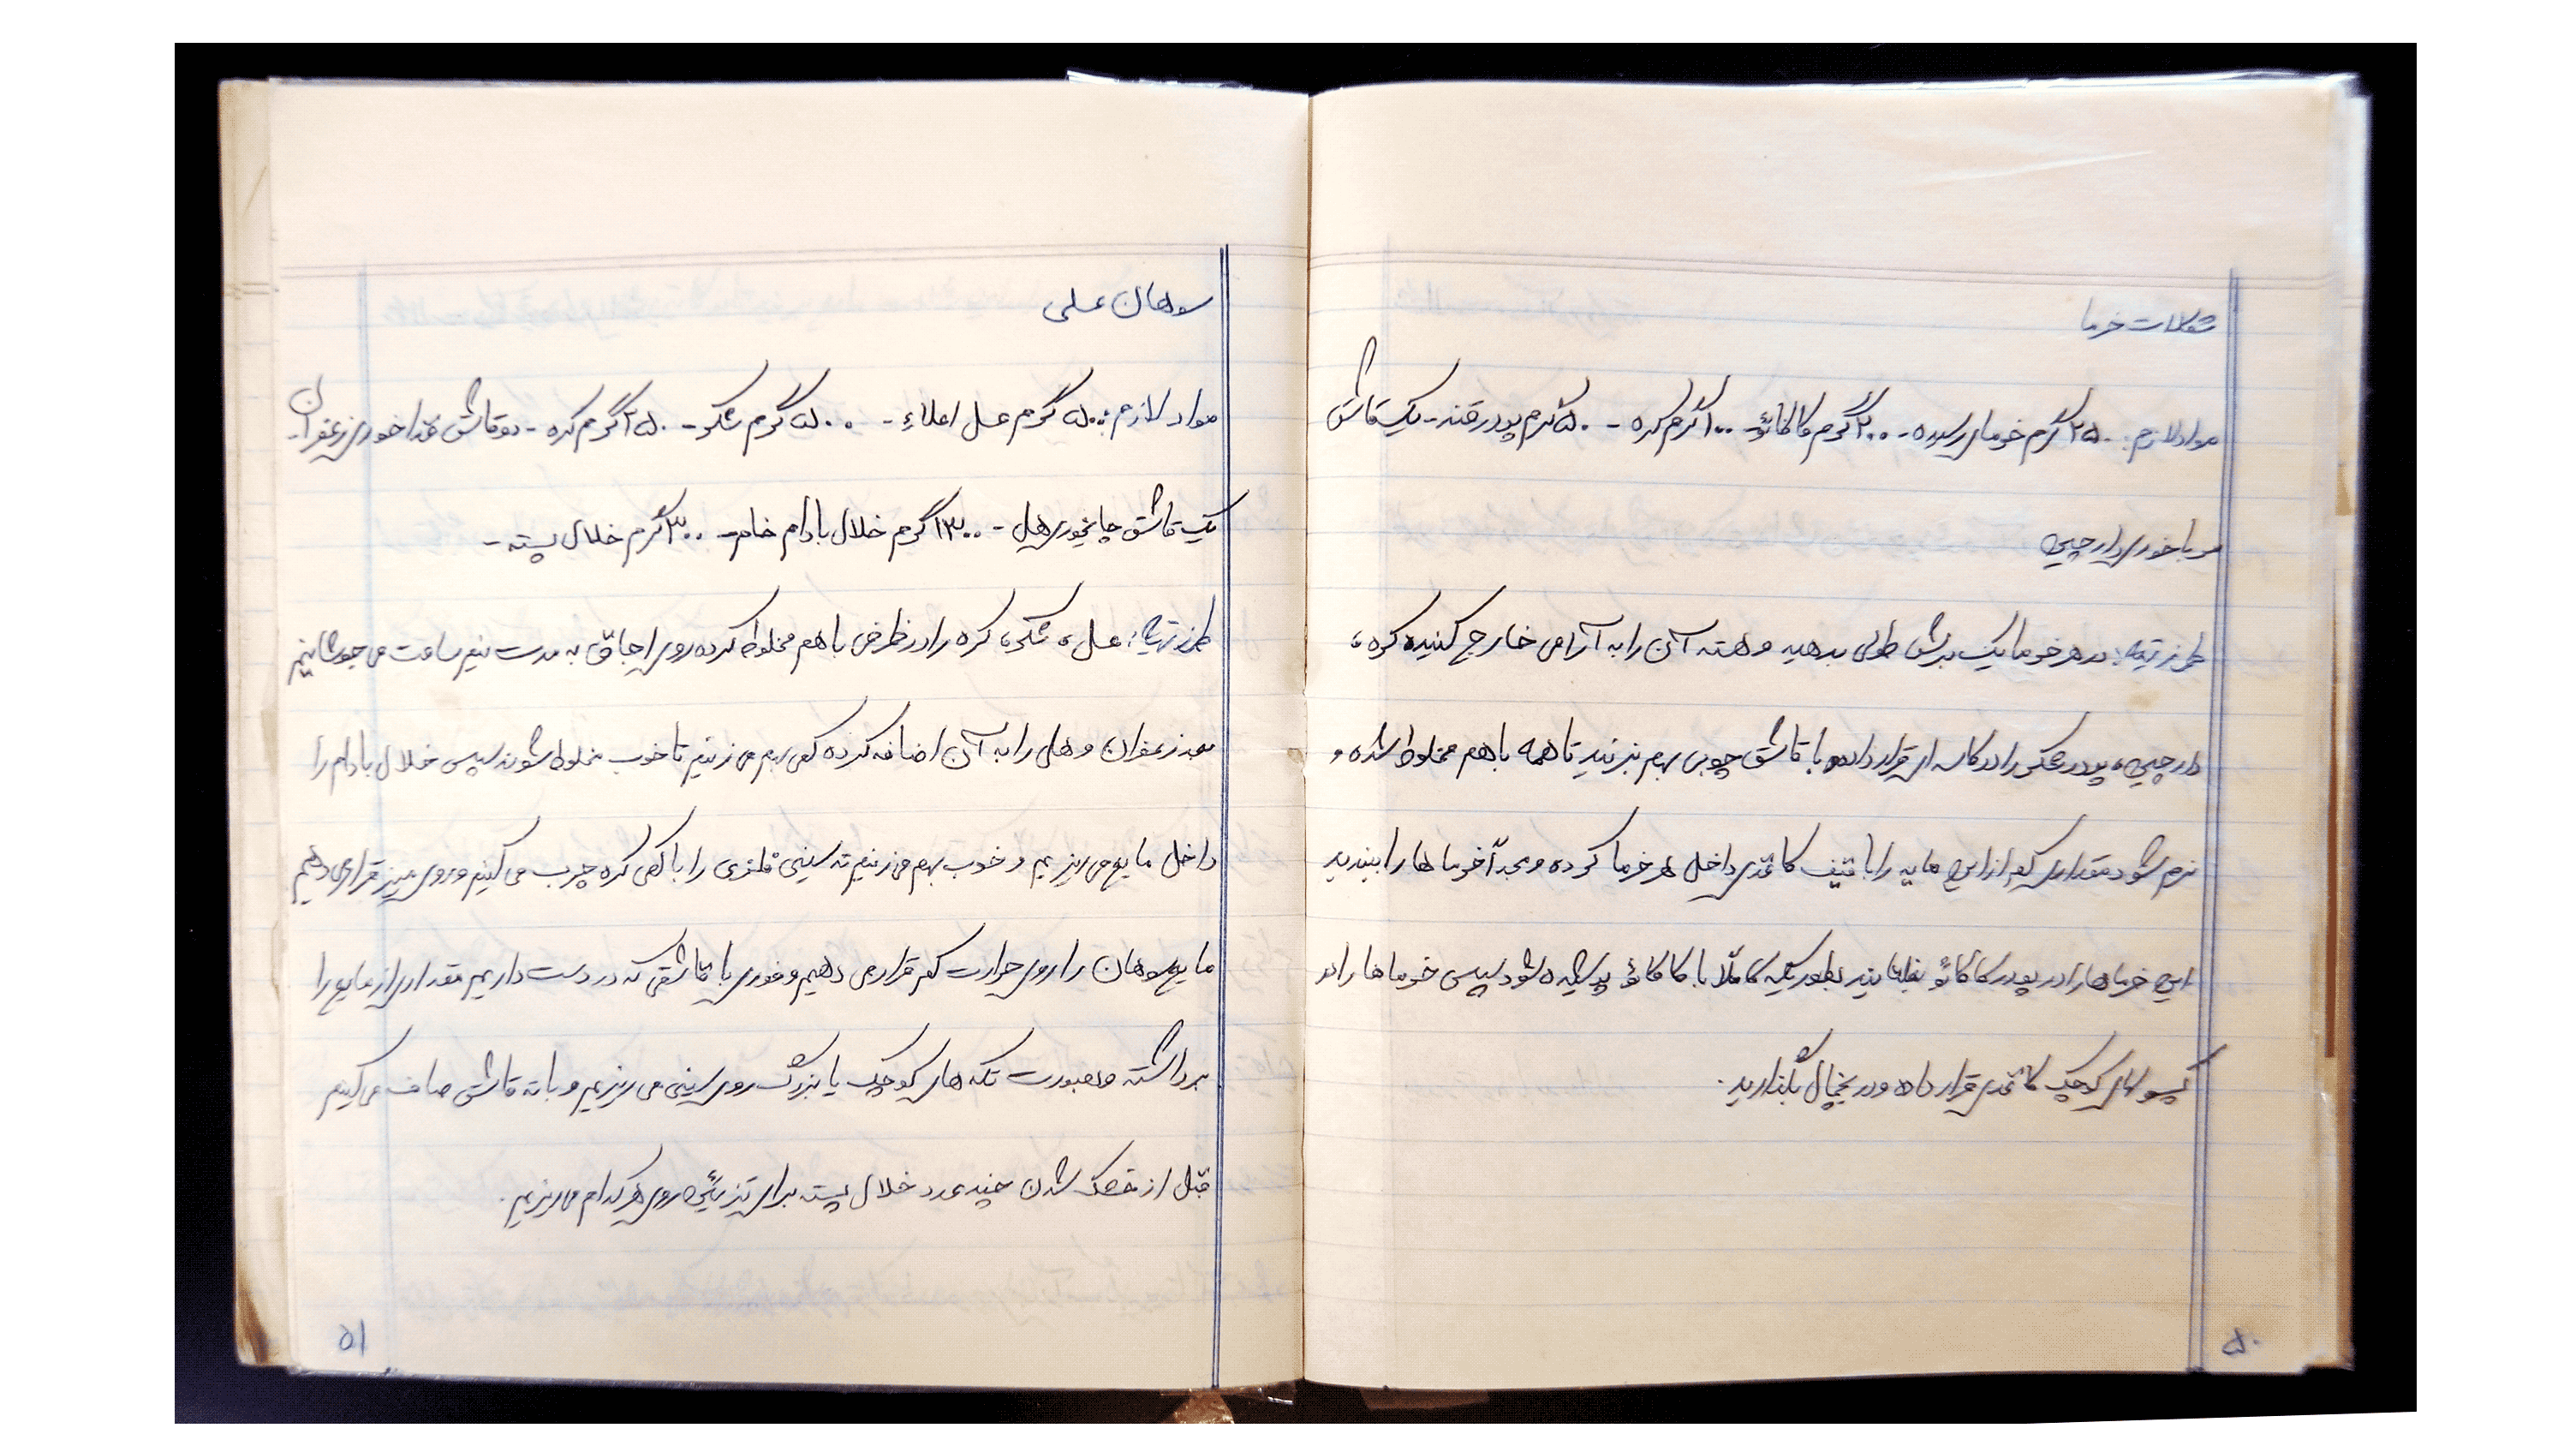 شکلات خرما
مواد لازم: ۲۵۰ گرم خرمای رسیده - ۲۰۰ گرم کاکائو - ۱۰۰ گرم کره - ۵۰ گرم پودر قند - یک قاشق
مرباخوری دارچین
طرز تهیه: به هر خرما یک برش طولی بدهید و هسته آن را به آرامی خارج کنید، کره،
دارچین، پودر شکر را در کاسه ای قرار داده با قاشق چوبی بهم بزنید تا همه با هم مخلوط شده و
نرم شود مقداری کم از این مایه را با قیف کاغذی داخل هر خرما کرده و مجدآ خرما ها را ببندید
این خرماها را در پودر کاکائو بغلتانید بطوریکه کاملآ با کاکائو پوشیده شود سپس خرماها را در
کپسولهای کوچک کاغذی قرار داده و در یخچال بگذارید.
۵۰
سوهان عسلی
مواد لازم: ۵۰۰ گرم عسل اعلاء - ۵۰۰ گرم شکر - ۲۵۰ گرم کره - دو قاشق غذا خوری زعفران -
یک قاشق چایخوری هل - ۳۰۰ گرم خلال بادام خام - ۳۰۰ گرم خلال پسته -
طرز تهیه: عسل، شکر، کره را در ظرفی با هم مخلوط کرده روی اجاق به مدت نیم ساعت می جوشانیم
بعد زعفران و هل را به آن اضافه کرده کمی بهم می زنیم تا خوب مخلوط شوند سپس خلال بادام را
داخل مایع می ریزیم و خوب بهم می زنیم ته سینی فلزی را با کمی کره چرب می کنیم و روی میز قرار می دهیم
مایع سوهان را روی حرارت کم قرار می دهیم و فوری با قاشقی که در دست داریم مقداری از مایع را
برداشته و بصورت تکه های کوچک یا بزرگ روی سینی می ریزیم و با ته قاشق صاف می کنیم
قبل از خشک شدن چند عدد خلال پسته برای تزئین روی هر کدام می ریزیم.
۵۱